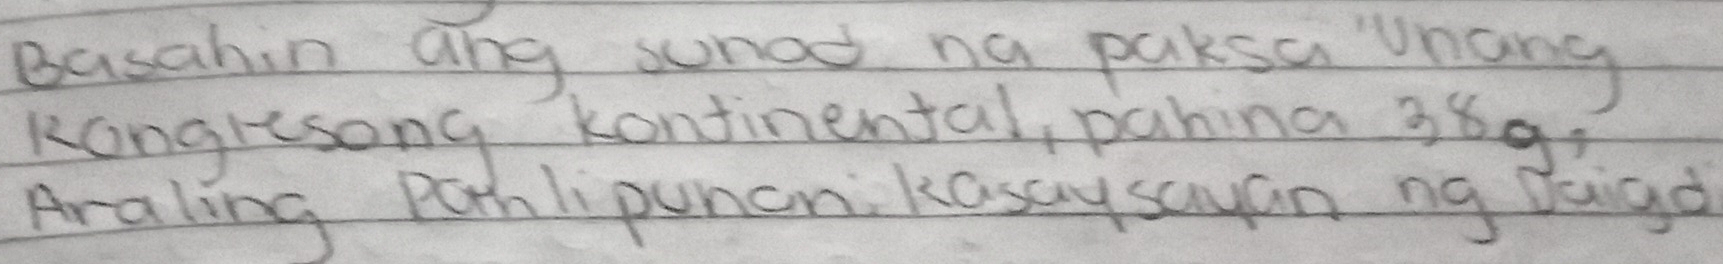 Basahin ang sunod na paksa "Unang
Kongresong Kontinental, pahina 389,
Araling Panlipunan: Kasaysayan ng Daigd